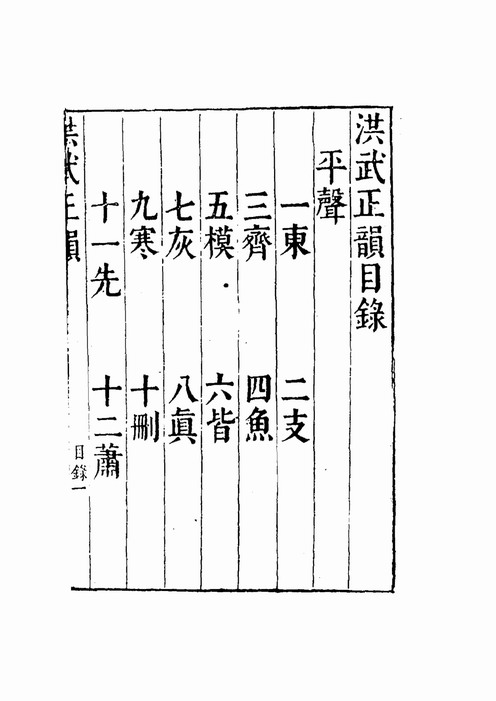 洪武正韻目錄
平聲
一東 二支
三齊 四魚
五模 六皆
七灰 八眞
九寒 十刪
十一先 十二蕭
洪武正韻 目錄一